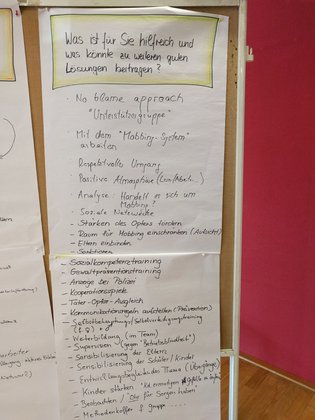 Was ist für Sie hilfreich und
was könnte zu weiteren guten
Lösungen beitragen?
· No blame approach
"Unterstützergruppe"
· Mit dem "Mobbing-System"
arbeiten
Respektvolle Umgang
· Positive Atmosphäre
· Analyse: Handelt es sich um
Mobbing?
· Soziale Netzwerke
- Stärken des Opfers fördern
- Raum für Mobbing einschränken (Aufsicht)
- Eltern einbinden
- Sanktionen
- Sozialkompetenztraining
- Gewaltpräventionstraining
- Anzeige bei Polizei
- Kooperationsspiele
- Täter-Opfer-Ausgleich
- Kommunikationsregeln aufstellen (Prävention)
- Selbstbehauptungs-/Selbstverteidigungstraining
- Weiterbildung (im Team)
- Supervision (gegen "Betriebsblindheit")
- Sensibilisierung der Eltern
- Sensibilisierung der Schüler/Kinder
- Enttabuisierung des Themas (Übergänge)
- Kinder stärken
- Beobachten / Ohr für Sorgen haben
- Methodenkoffer f. Gruppe